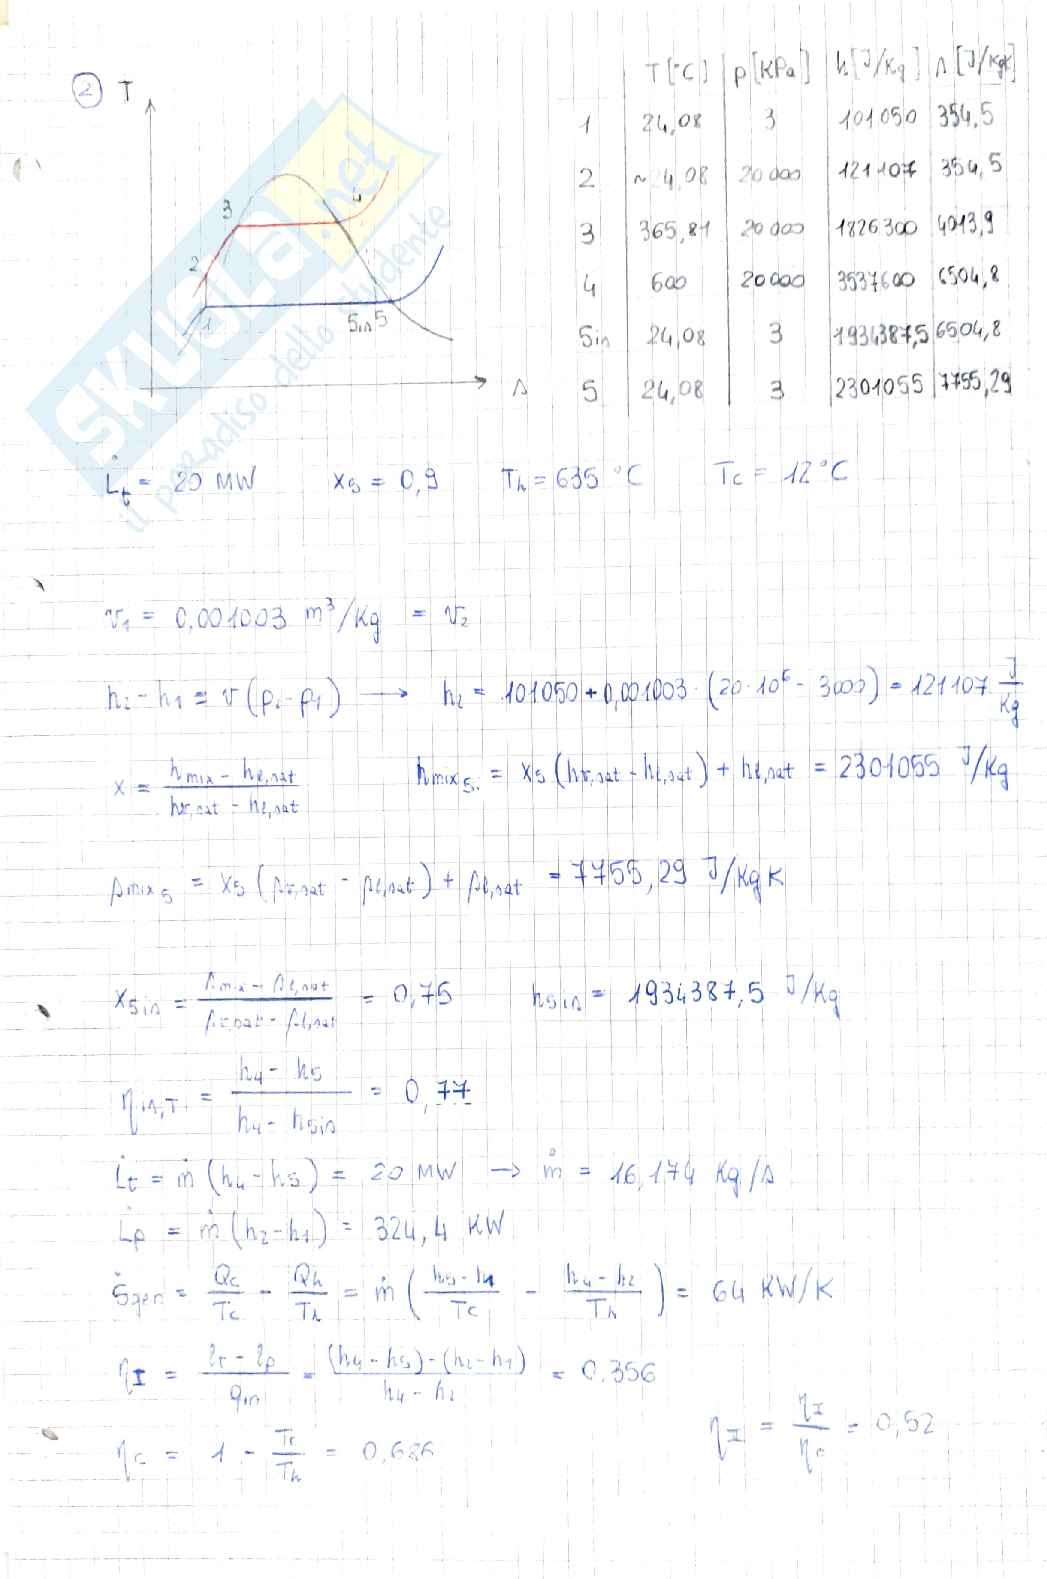 ② T
T [°C] | p [KPa] | h [J/Kg] | s [J/KgK]
1 | 24,08 | 3 | 101050 | 354,5
2 | ~ 4,08 | 20000 | 121107 | 354,5
3 | 365,81 | 20000 | 1826300 | 4013,9
4 | 600 | 20000 | 3537600 | 6504,8
5is | 24,08 | 3 | 1934387,5 | 6504,8
5 | 24,08 | 3 | 2301055 | 7755,29
3 4
2
1 5is 5
s
SKUOLA.net
il paradiso dello studente
L̇t = 20 MW x5 = 0,9 Th = 635 °C Tc = 12 °C
v1 = 0,001003 m³/Kg = v2
h2 - h1 = v (p2 - p1) → h2 = 101050 + 0,001003 · (20·10⁶ - 3000) = 121107 J/Kg
x = (hmix - hl,sat)/(hv,sat - hl,sat) hmix5 = x5 (hv,sat - hl,sat) + hl,sat = 2301055 J/Kg
smix5 = x5 (sv,sat - sl,sat) + sl,sat = 7755,29 J/KgK
x5is = (smix - sl,sat)/(sv,sat - sl,sat) = 0,75 h5is = 1934387,5 J/Kg
ηis,T = (h4 - h5)/(h4 - h5is) = 0,77
L̇t = ṁ (h4 - h5) = 20 MW → ṁ = 16,174 Kg/s
L̇p = ṁ (h2 - h1) = 324,4 KW
Ṡgen = Qc/Tc - Qh/Th = ṁ ((h5 - h1)/Tc - (h4 - h2)/Th) = 64 KW/K
ηI = (lt - lp)/qin = ((h4 - h5) - (h2 - h1))/(h4 - h2) = 0.356
ηc = 1 - Tc/Th = 0,686 ηII = ηI/ηc = 0,52